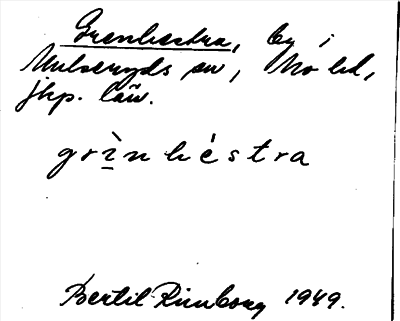 Grenhestra, by i
Mulseryds sn, Mo hd,
jkp. län.
grìnhéstra
Bertil Rimborg 1949.